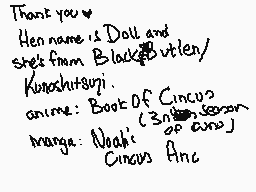 Thank you ♥
Her name is Doll and
she's from Black Butler/
Kuroshitsuji.
anime: Book Of Circus
(3rd season
of Kuro)
manga: Noah's
Circus Arc